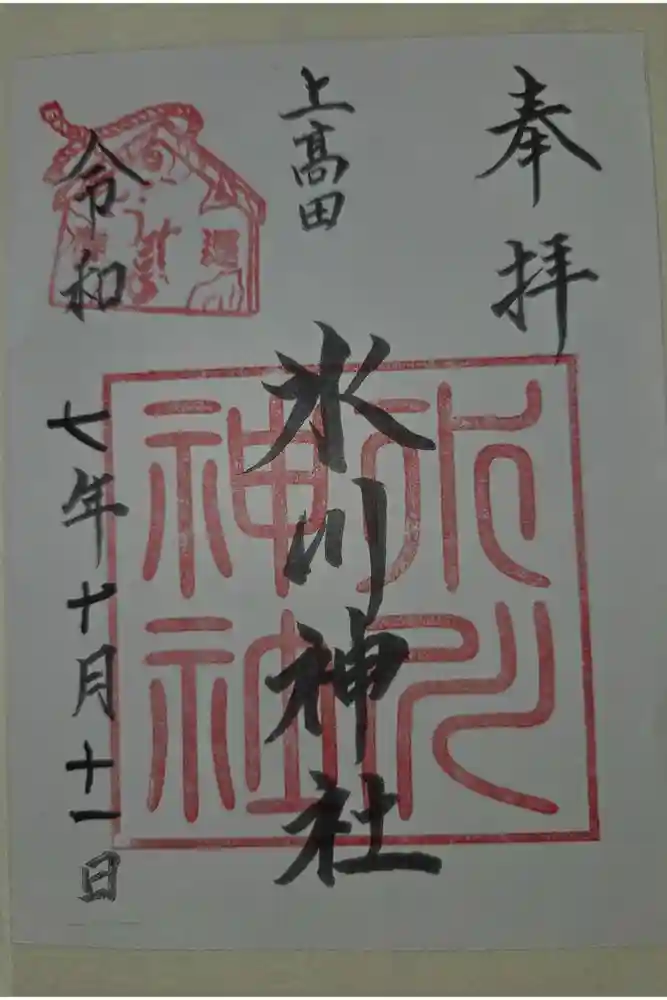 奉拝
上髙田
氷川神社
氷川
神社
令和七年十月十一日